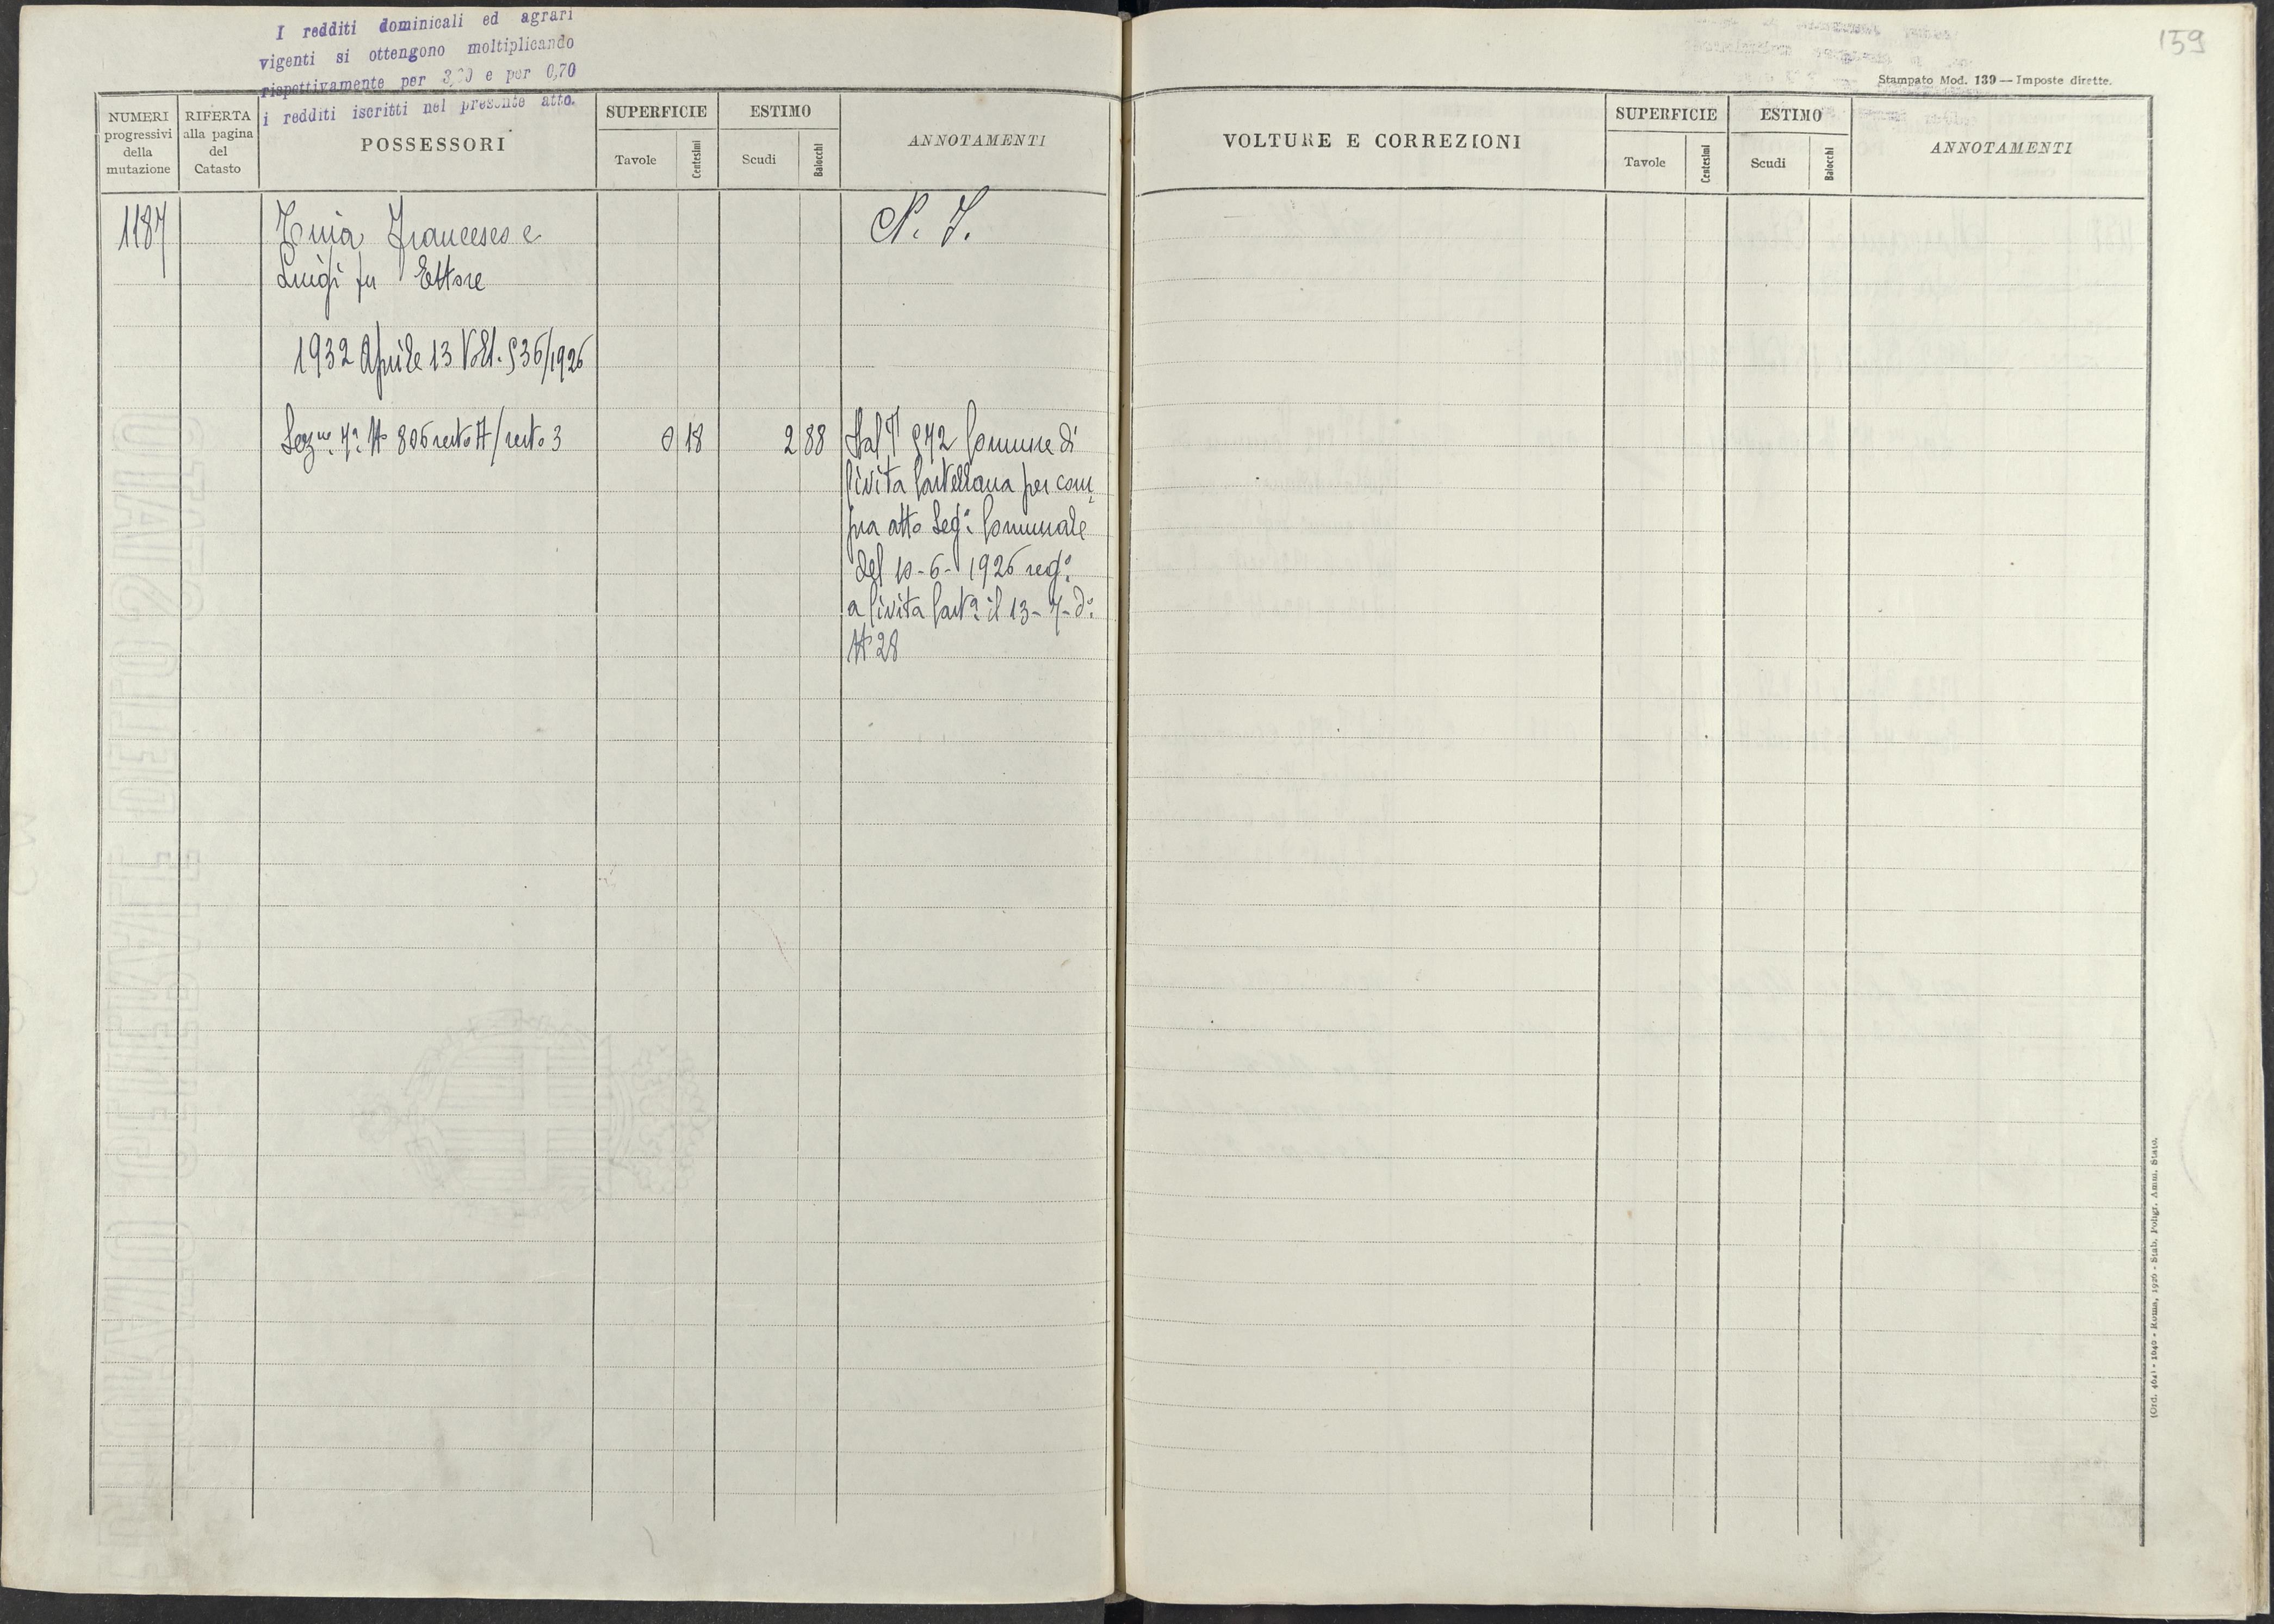 I redditi dominicali ed agrari
vigenti si ottengono moltiplicando
rispettivamente per e per 0,70
i redditi iscritti nel presente atto.
159
Stampato Mod. 139 — Imposte dirette.
NUMERI progressivi della mutazione
RIFERTA alla pagina del Catasto
POSSESSORI
SUPERFICIE
Tavole
Centesimi
ESTIMO
Scudi
Baiocchi
ANNOTAMENTI
VOLTURE E CORREZIONI
SUPERFICIE
Tavole
Centesimi
ESTIMO
Scudi
Baiocchi
ANNOTAMENTI
1187 Francesco e
Luigi fu Ettore
1932 Aprile 13 Volt. 936/1926
Sez.ne 7ª N 806 resto A/resto 3 0 18 2 88 Dal 942 Comune di
Civita Castellana per com
pra atto Seg. Comunale
del 10-6-1926 reg.º
a Civita Cast.ª il 13-7-dº
N 28
(Ord. 464) - 1040 - Roma, 1926 - Stab. Poligr. Amm. Stato.